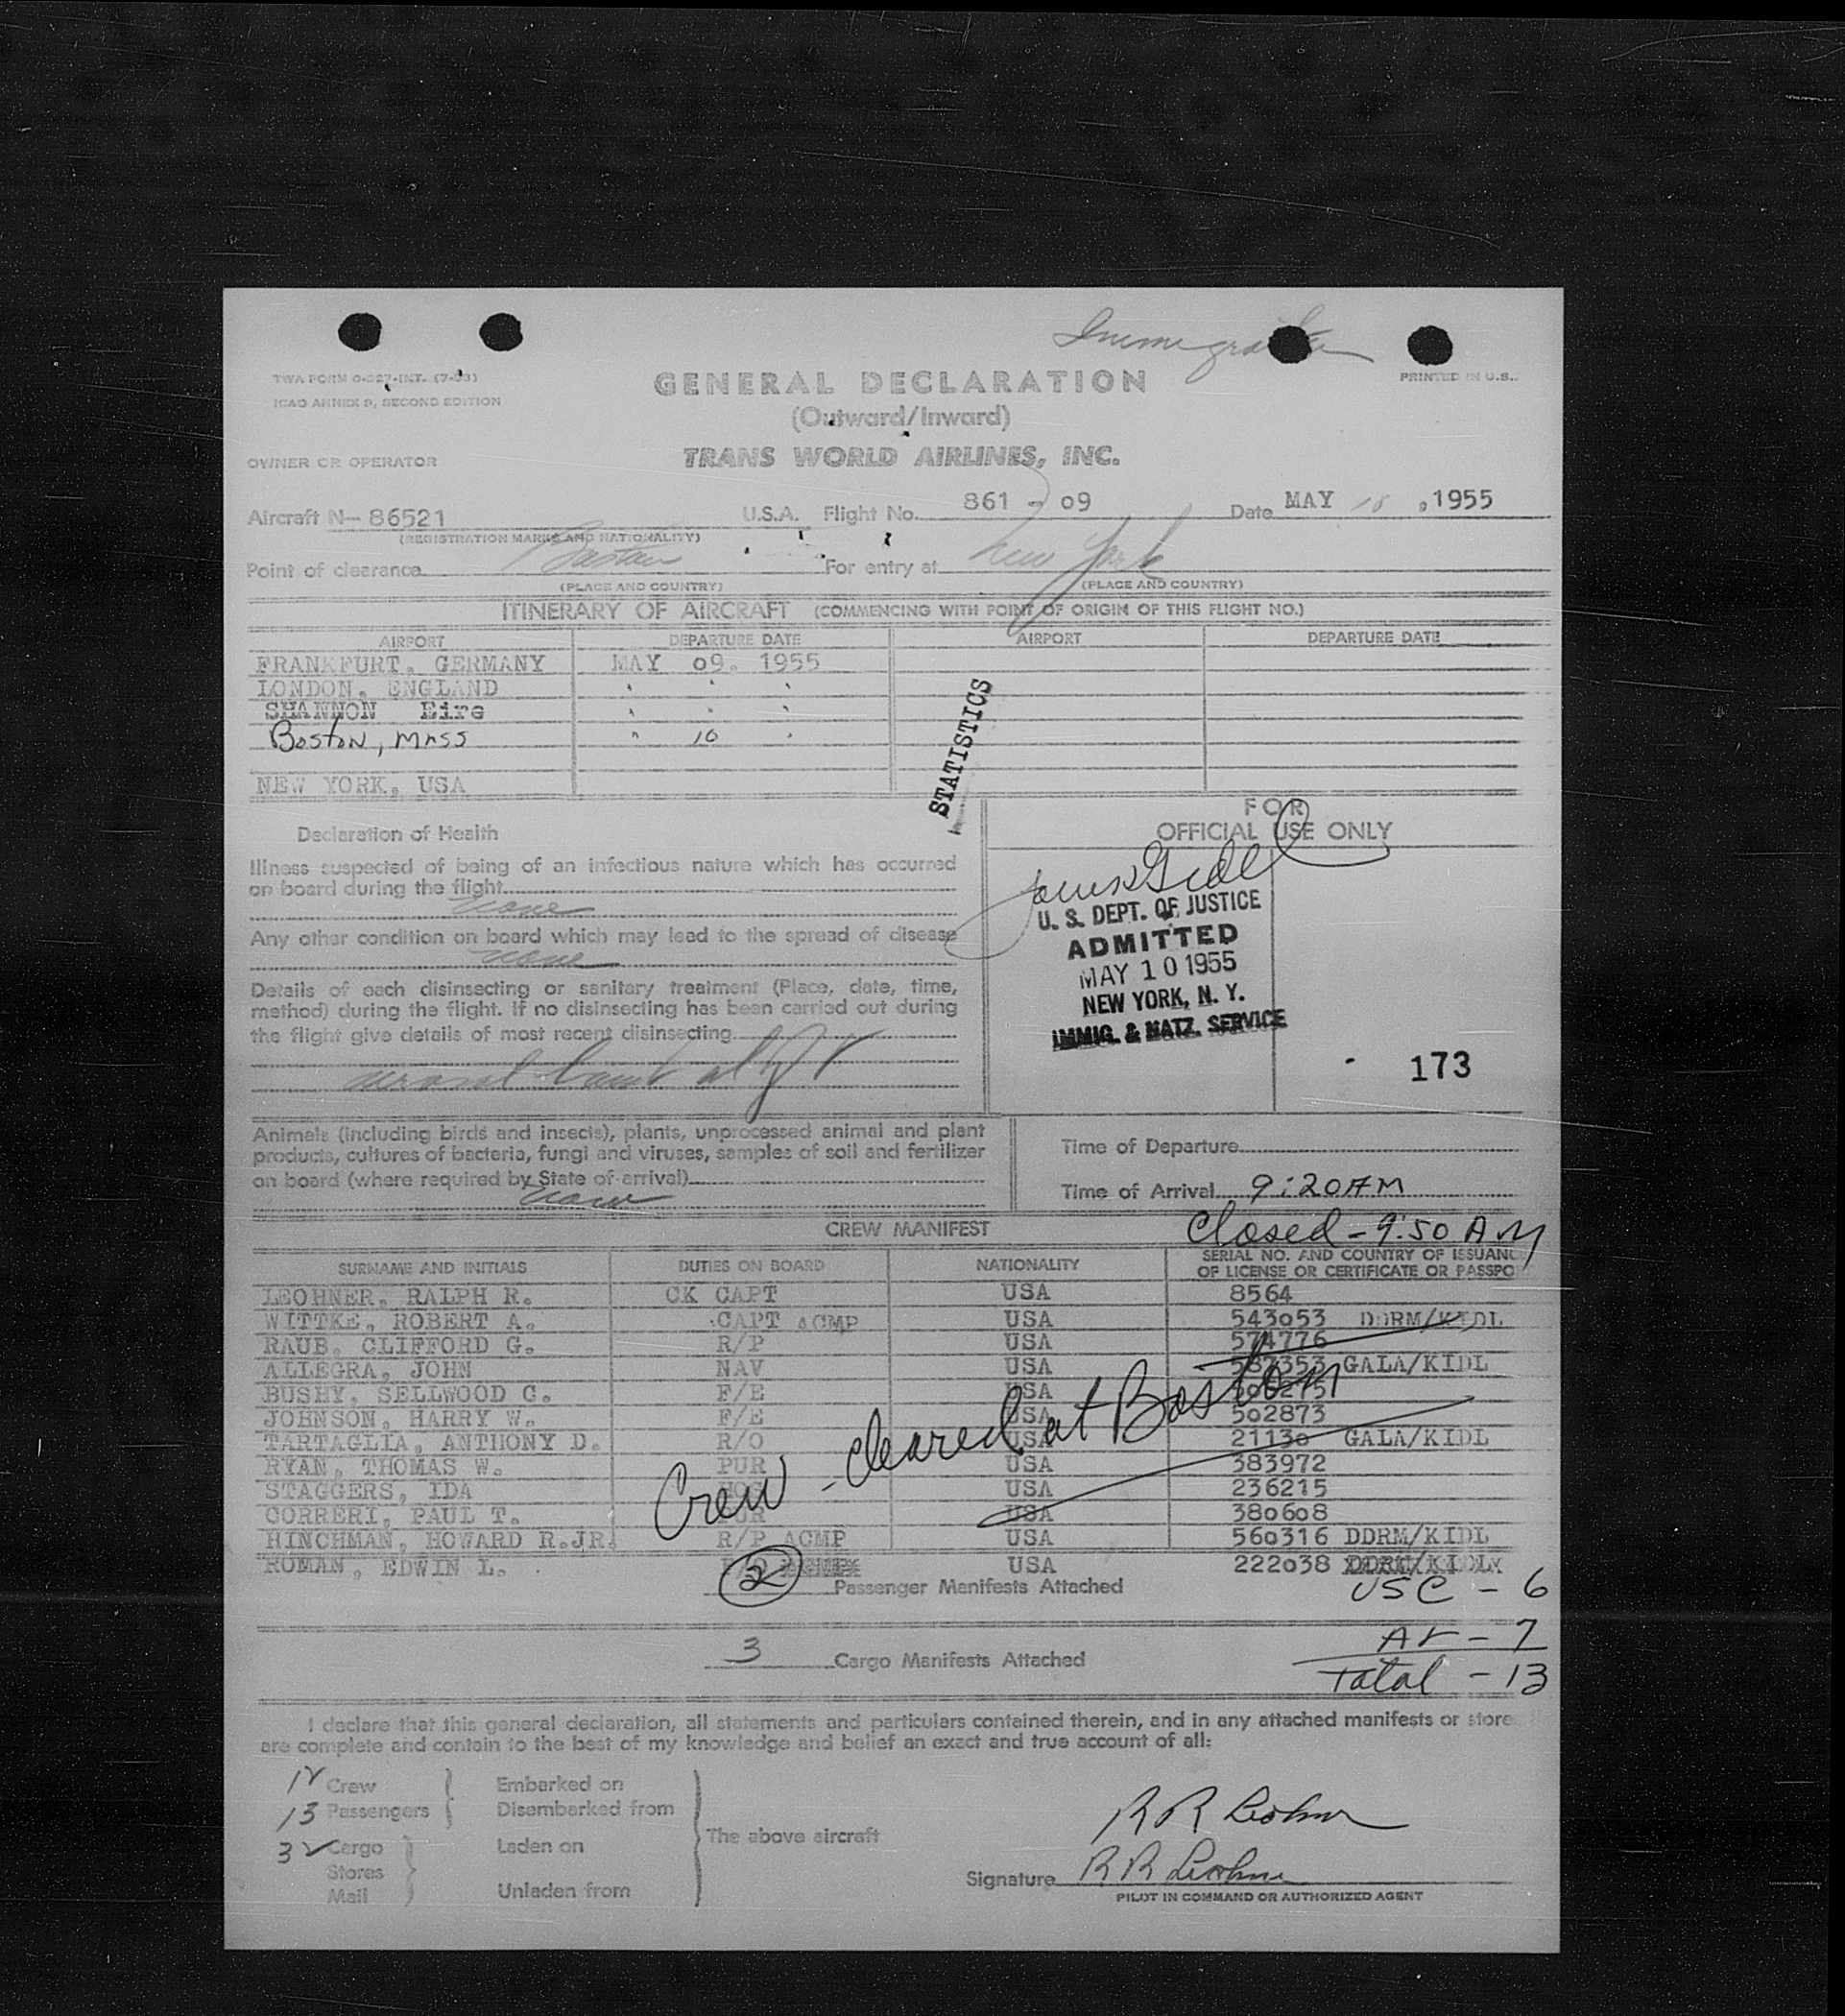 Immigration
TWA FORM 0-327-INT. (7-53)
ICAO ANNEX 9, SECOND EDITION
PRINTED IN U.S.
GENERAL DECLARATION
(Outward/Inward)
OWNER OR OPERATOR
TRANS WORLD AIRLINES, INC.
Aircraft N- 86521 U.S.A. Flight No. 861 - 09 Date MAY 10, 1955
(REGISTRATION MARKS AND NATIONALITY)
Point of clearance Boston For entry at New York
(PLACE AND COUNTRY) (PLACE AND COUNTRY)
ITINERARY OF AIRCRAFT (COMMENCING WITH POINT OF ORIGIN OF THIS FLIGHT NO.)
AIRPORT DEPARTURE DATE AIRPORT DEPARTURE DATE
FRANKFURT, GERMANY MAY 09. 1955
LONDON, ENGLAND " " "
SHANNON Eire " " "
Boston, Mass " 10 "
NEW YORK, USA
STATISTICS
Declaration of Health
Illness suspected of being of an infectious nature which has occurred
on board during the flight
none
Any other condition on board which may lead to the spread of disease
none
Details of each disinsecting or sanitary treatment (Place, date, time,
method) during the flight. If no disinsecting has been carried out during
the flight give details of most recent disinsecting
FOR
OFFICIAL USE ONLY
U. S. DEPT. OF JUSTICE
ADMITTED
MAY 10 1955
NEW YORK, N. Y.
IMMIG. & NATZ. SERVICE
- 173
Animals (including birds and insects), plants, unprocessed animal and plant
products, cultures of bacteria, fungi and viruses, samples of soil and fertilizer
on board (where required by State of arrival)
none
Time of Departure
Time of Arrival 9:20 AM
Closed - 9:50 AM
CREW MANIFEST
SURNAME AND INITIALS DUTIES ON BOARD NATIONALITY SERIAL NO. AND COUNTRY OF ISSUANC
OF LICENSE OR CERTIFICATE OR PASSPO
LEOHNER, RALPH R. CK CAPT USA 8564
WITTKE, ROBERT A. CAPT ACMP USA 543053 DDRM/KIDL
RAUB, CLIFFORD G. R/P USA 574776
ALLEGRA, JOHN NAV USA 587353 GALA/KIDL
BUSHY, SELLWOOD C. F/E USA
JOHNSON, HARRY W. F/E USA 502873
TARTAGLIA, ANTHONY D. R/O USA 21130 GALA/KIDL
RYAN, THOMAS W. PUR USA 383972
STAGGERS, IDA HOS USA 236215
CORRERI, PAUL T. PUR USA 380608
HINCHMAN, HOWARD R.JR. R/P ACMP USA 560316 DDRM/KIDL
ROMAN, EDWIN L. USA 222038 DDRM/KIDL
Crew - cleared at Boston
2 Passenger Manifests Attached
USC - 6
3 Cargo Manifests Attached
Ar - 7
Total - 13
I declare that this general declaration, all statements and particulars contained therein, and in any attached manifests or store
are complete and contain to the best of my knowledge and belief an exact and true account of all:
12 Crew
13 Passengers
Embarked on
Disembarked from
3 Cargo
Stores
Mail
Laden on
Unladen from
The above aircraft
R R Leohner
Signature R R Leohner
PILOT IN COMMAND OR AUTHORIZED AGENT